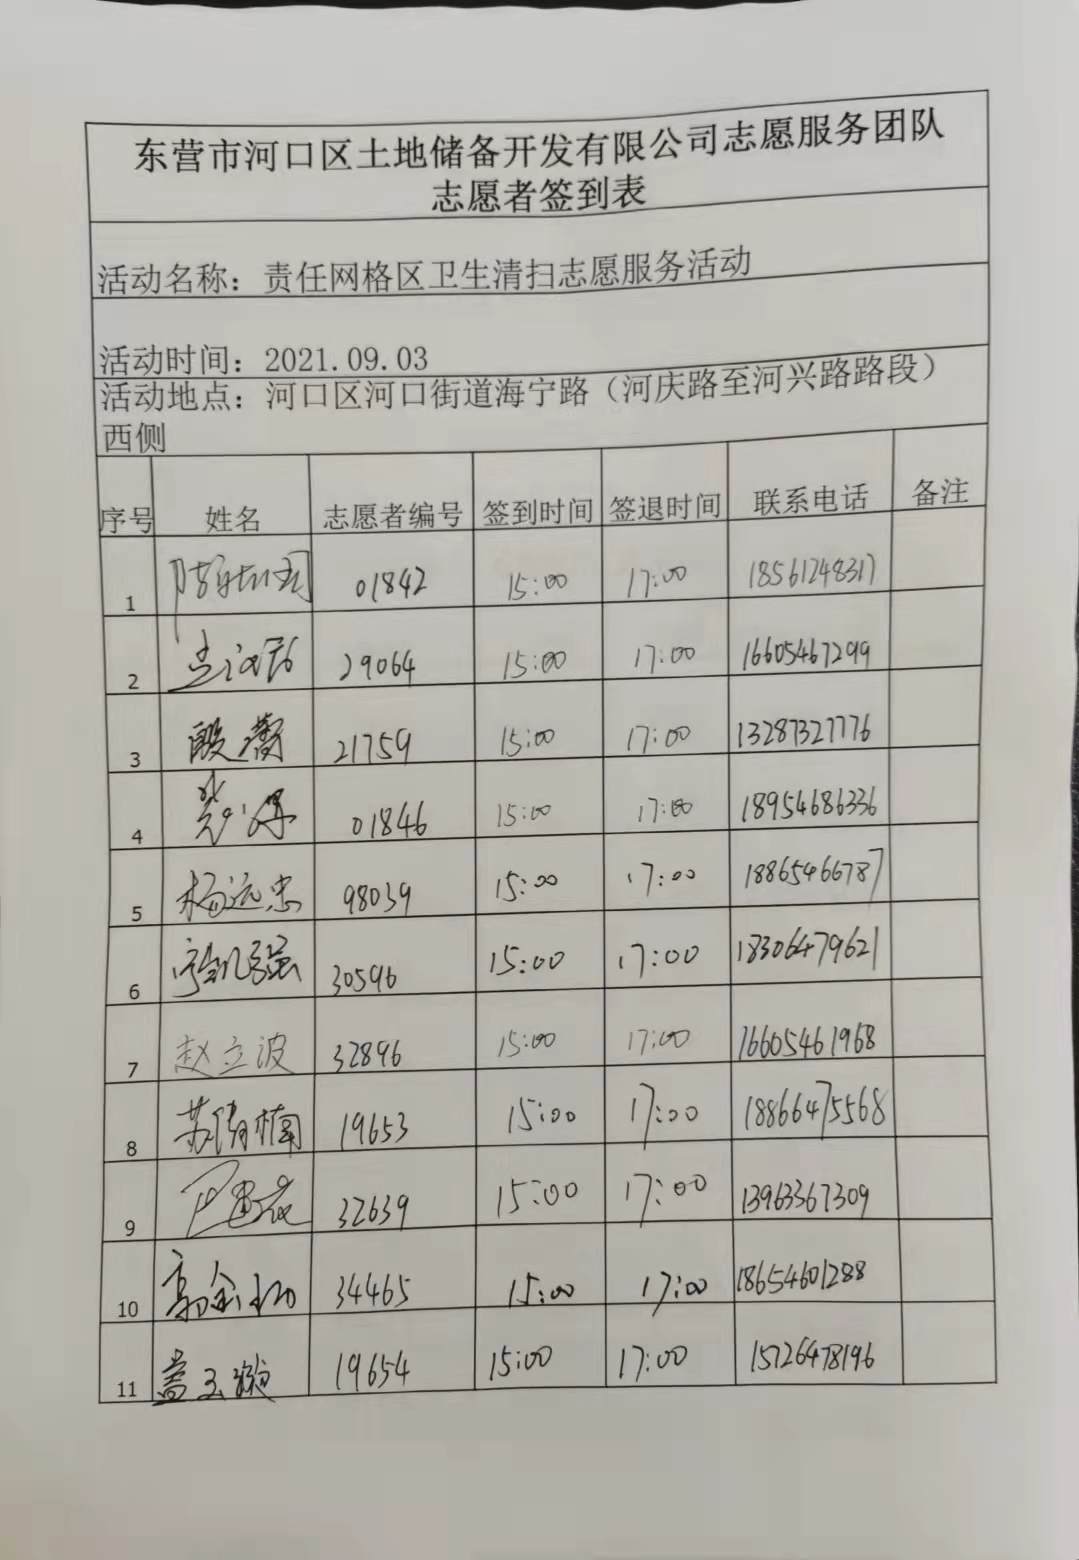 东营市河口区土地储备开发有限公司志愿服务团队
志愿者签到表
活动名称：责任网格区卫生清扫志愿服务活动
活动时间：2021.09.03
活动地点：河口区河口街道海宁路（河庆路至河兴路路段）
西侧
序号 姓名 志愿者编号 签到时间 签退时间 联系电话 备注
1 01842 15:00 17:00 18561248317
2 29064 15:00 17:00 16605467299
3 殷蕾 21759 15:00 17:00 13287327776
4 01846 15:00 17:00 18954686336
5 杨远忠 98039 15:00 17:00 18865466787
6 30596 15:00 17:00 18306479621
7 赵立波 32896 15:00 17:00 16605461968
8 苏倩楠 19653 15:00 17:00 18866475568
9 32639 15:00 17:00 13963367309
10 34465 15:00 17:00 18654601288
11 盖玉璇 19654 15:00 17:00 15726478196